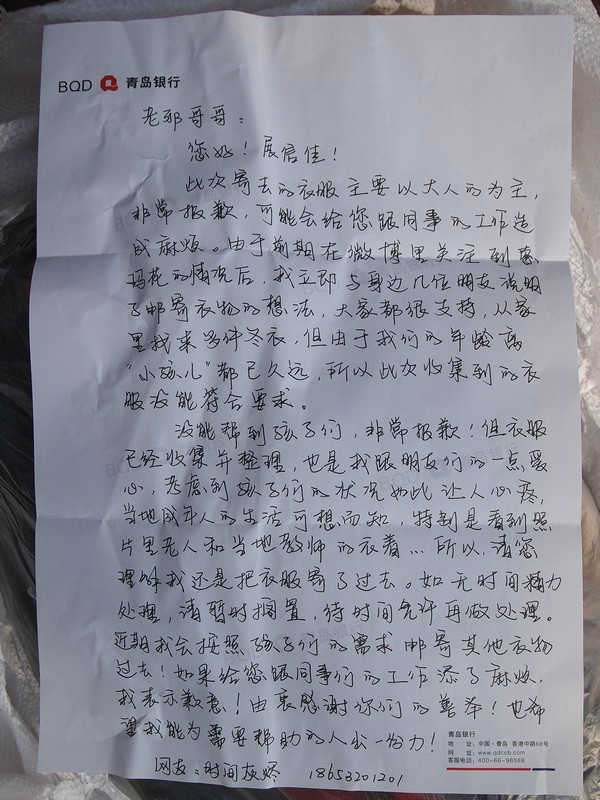 BQD 青岛银行
老郭哥哥:
您好!展信佳!
此次寄去的衣服主要以大人的为主,
非常抱歉,可能会给您跟同事的工作造
成麻烦。由于前期在微博里关注到惠
玛花的情况后,我立即与身边几位朋友说明
了邮寄衣物的想法,大家都很支持,从家
里找来多件冬衣,但由于我们的年龄离
“小孩儿”都已久远,所以此次收集到的衣
服没能符合要求。
没能帮到孩子们,非常抱歉!但衣服
已经收集并整理,也是我跟朋友们的一点爱
心,考虑到孩子们的状况如此让人心疼,
当地成年人的生活可想而知,特别是看到照
片里老人和当地教师的衣着...所以,请您
理解我还是把衣服寄了过去。如无时间精力
处理,请暂时搁置,待时间允许再做处理。
近期我会按照孩子们的需求邮寄其他衣物
过去!如果给您跟同事们的工作添了麻烦,
我表示歉意!由衷感谢你们的善举!也希
望我能为需要帮助的人出一份力!
网友:时间灰烬 18653201201
青岛银行
地 址:中国·青岛 香港中路68号
网 址:www.qdccb.com
客服电话:400-66-96588